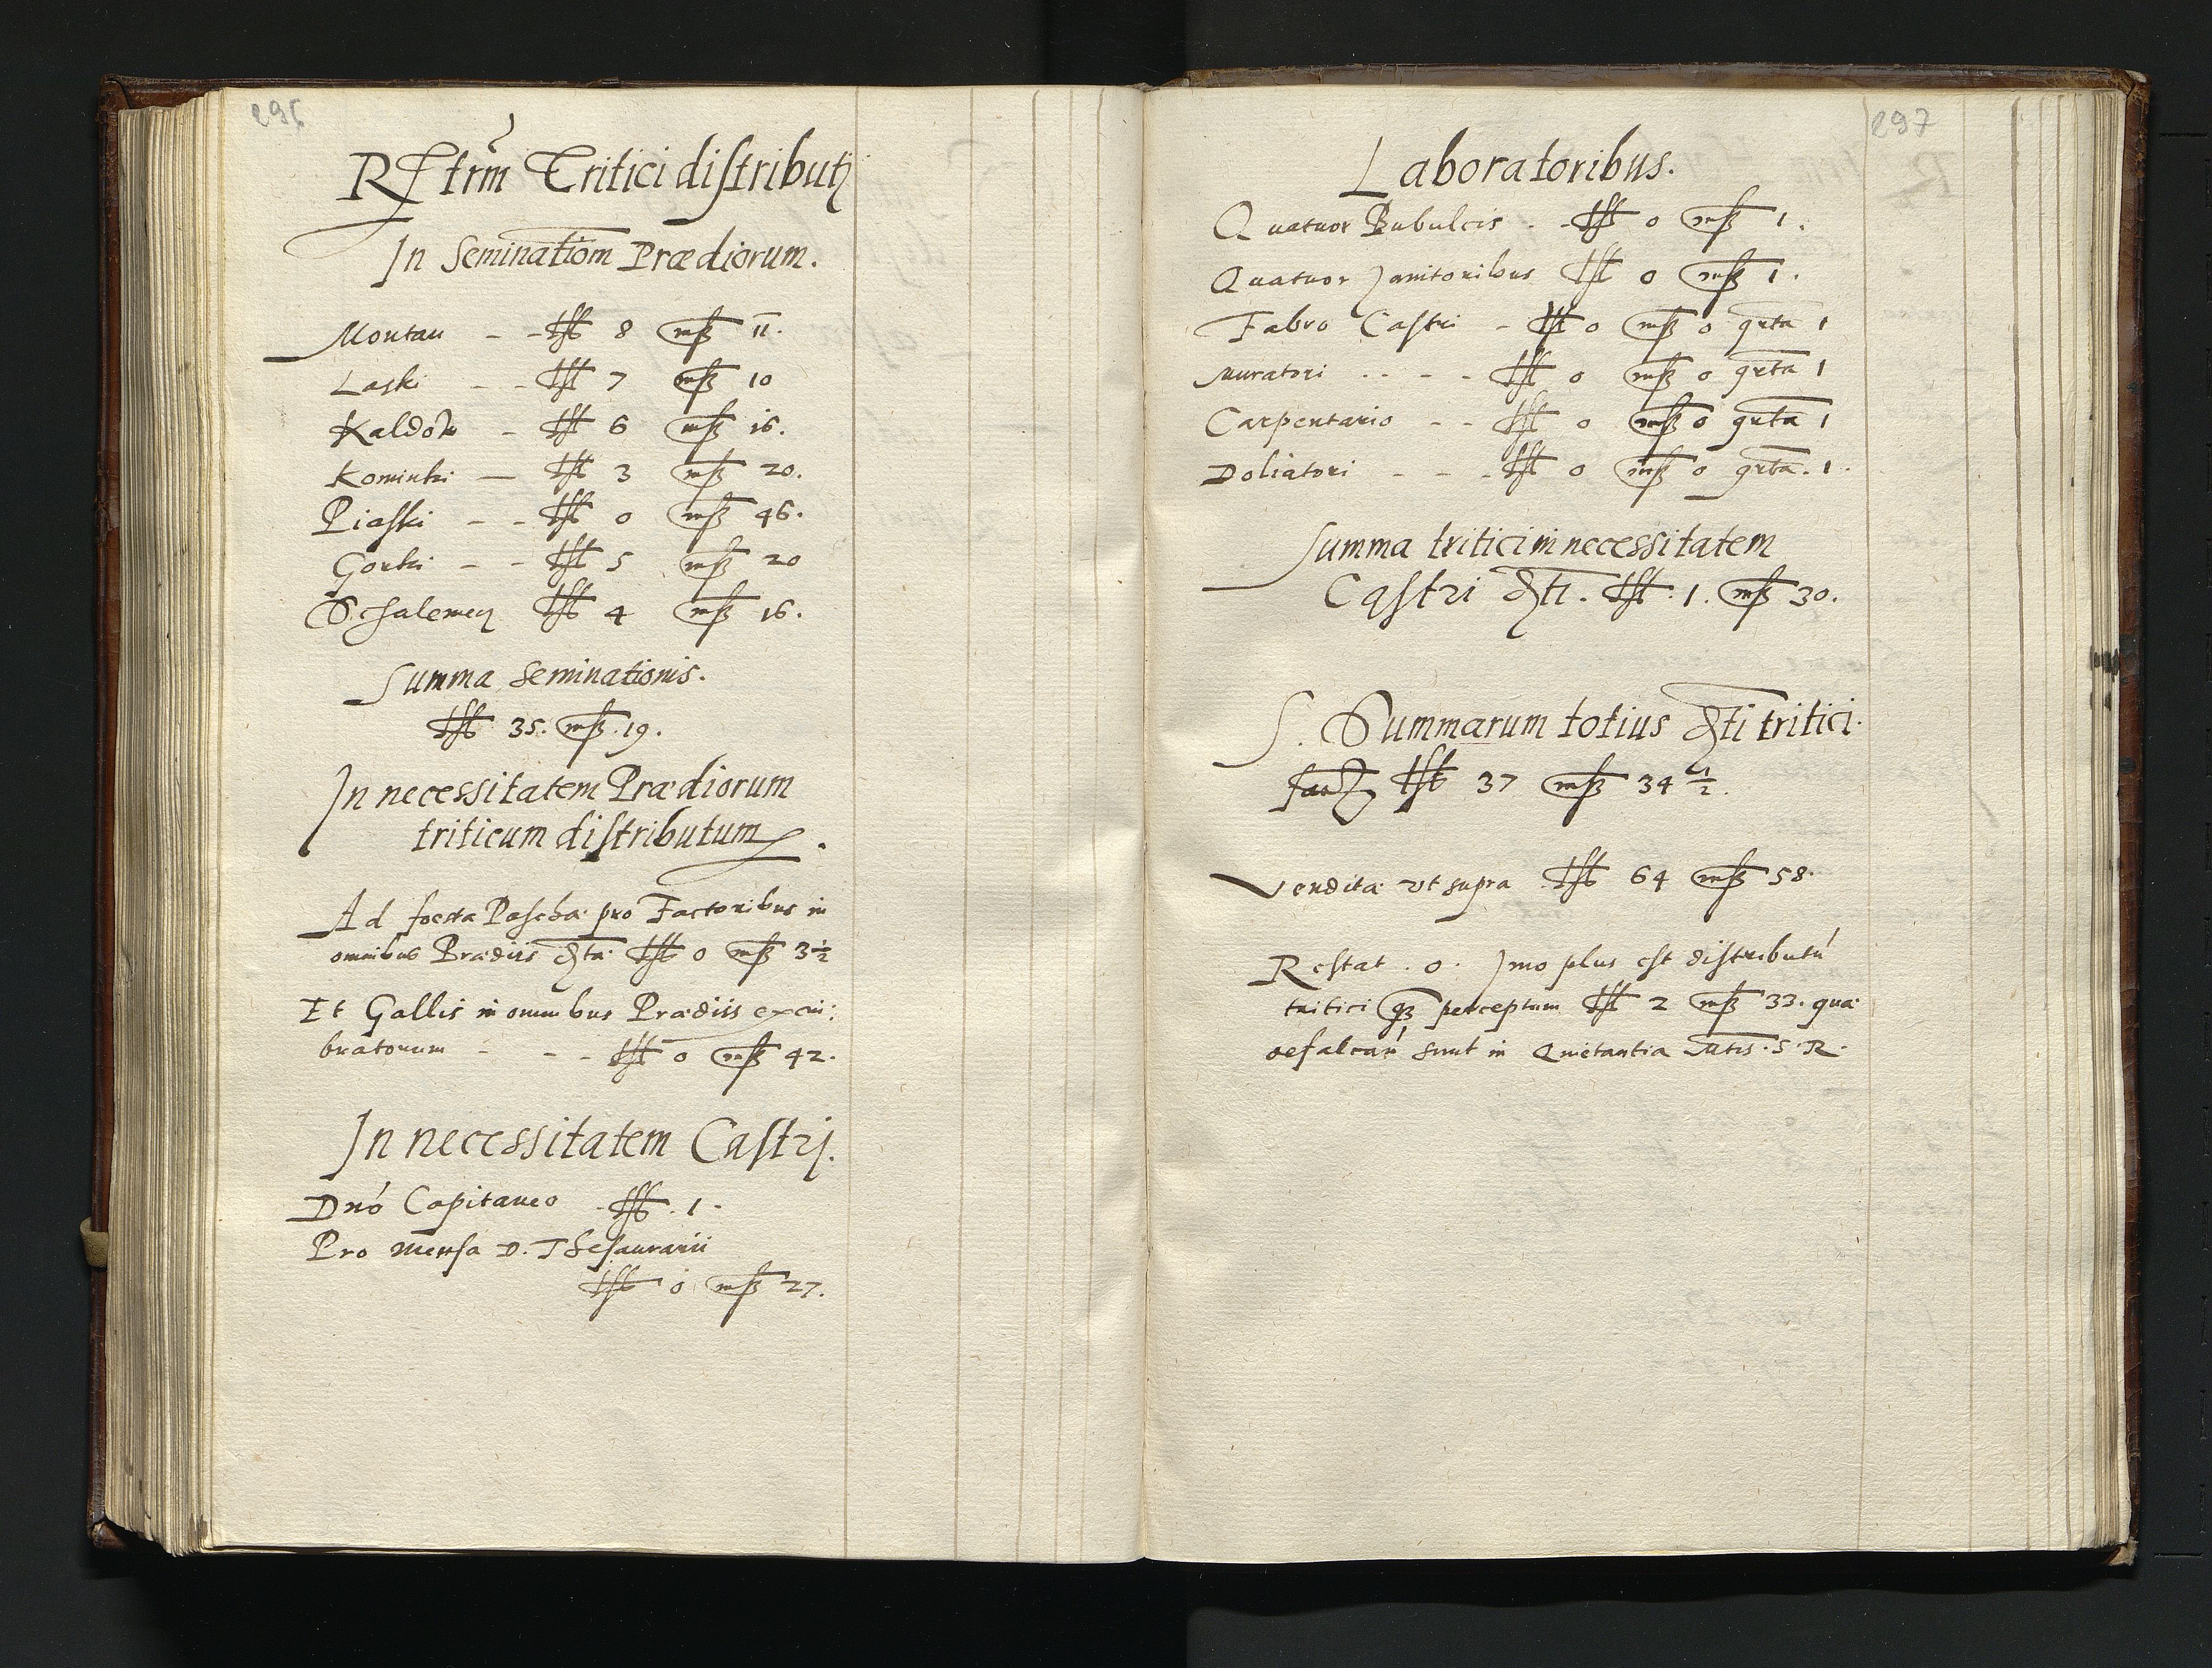 296
Rgſtrm Tritici diſtributj
In Seminatiom Prædiorum.
Montau - - lſt 8 mſz 11.
Laski - - lſt 7 mſz 10
Kaldow - lſt 6 mſz 16.
Kominki — lſt 3 mſz 20.
Piaſki - - lſt 0 mſz 46.
Gorki - - lſt 5 mſz 20
Schalemej lſt 4 mſz 16.
Summa Seminationis.
lſt 35. mſz 19.
In necessitatem Prædiorum
triticum diſtributum.
Ad foesta Pascha pro Factoribus in
omnibus Prædiis dſta lſt 0 mſz 3 1/2
Et Gallis in omnibus Prædiis excui:
bratorum - - - lſt 0 mſz 42.
In necessitatem Caſtrj.
Dnó Capitaneo - lſt 1.
Pro Menſa D. Theſaurarii
lſt 0 mſz 27.
297
Laboratoribus.
Quatuor Bubulcis - - lſt 0 mſz 1.
Quatuor Janitoribus lſt 0 mſz 1.
Fabro Caſtri - lſt 0 mſz 0 qrta 1
Muratori - - - - lſt 0 mſz 0 qrta 1
Carpentario - - lſt 0 mſz 0 qrta 1
Doliatori - - - lſt 0 mſz 0 qrta. 1.
Summa tritici in necessitatem
Caſtri dſti. lſt. 1. mſz 30.
S. Summarum totius dſti tritici.
lſt 37 mſz 34 1/2.
Vendita ut supra lſt 64 mſz 58.
Restat. 0. Imo plus eſt diſtributú
tritici qz perceptum lſt 2 mſz 33. qua
defalcań sunt in Quietantia Mtis. S. R.